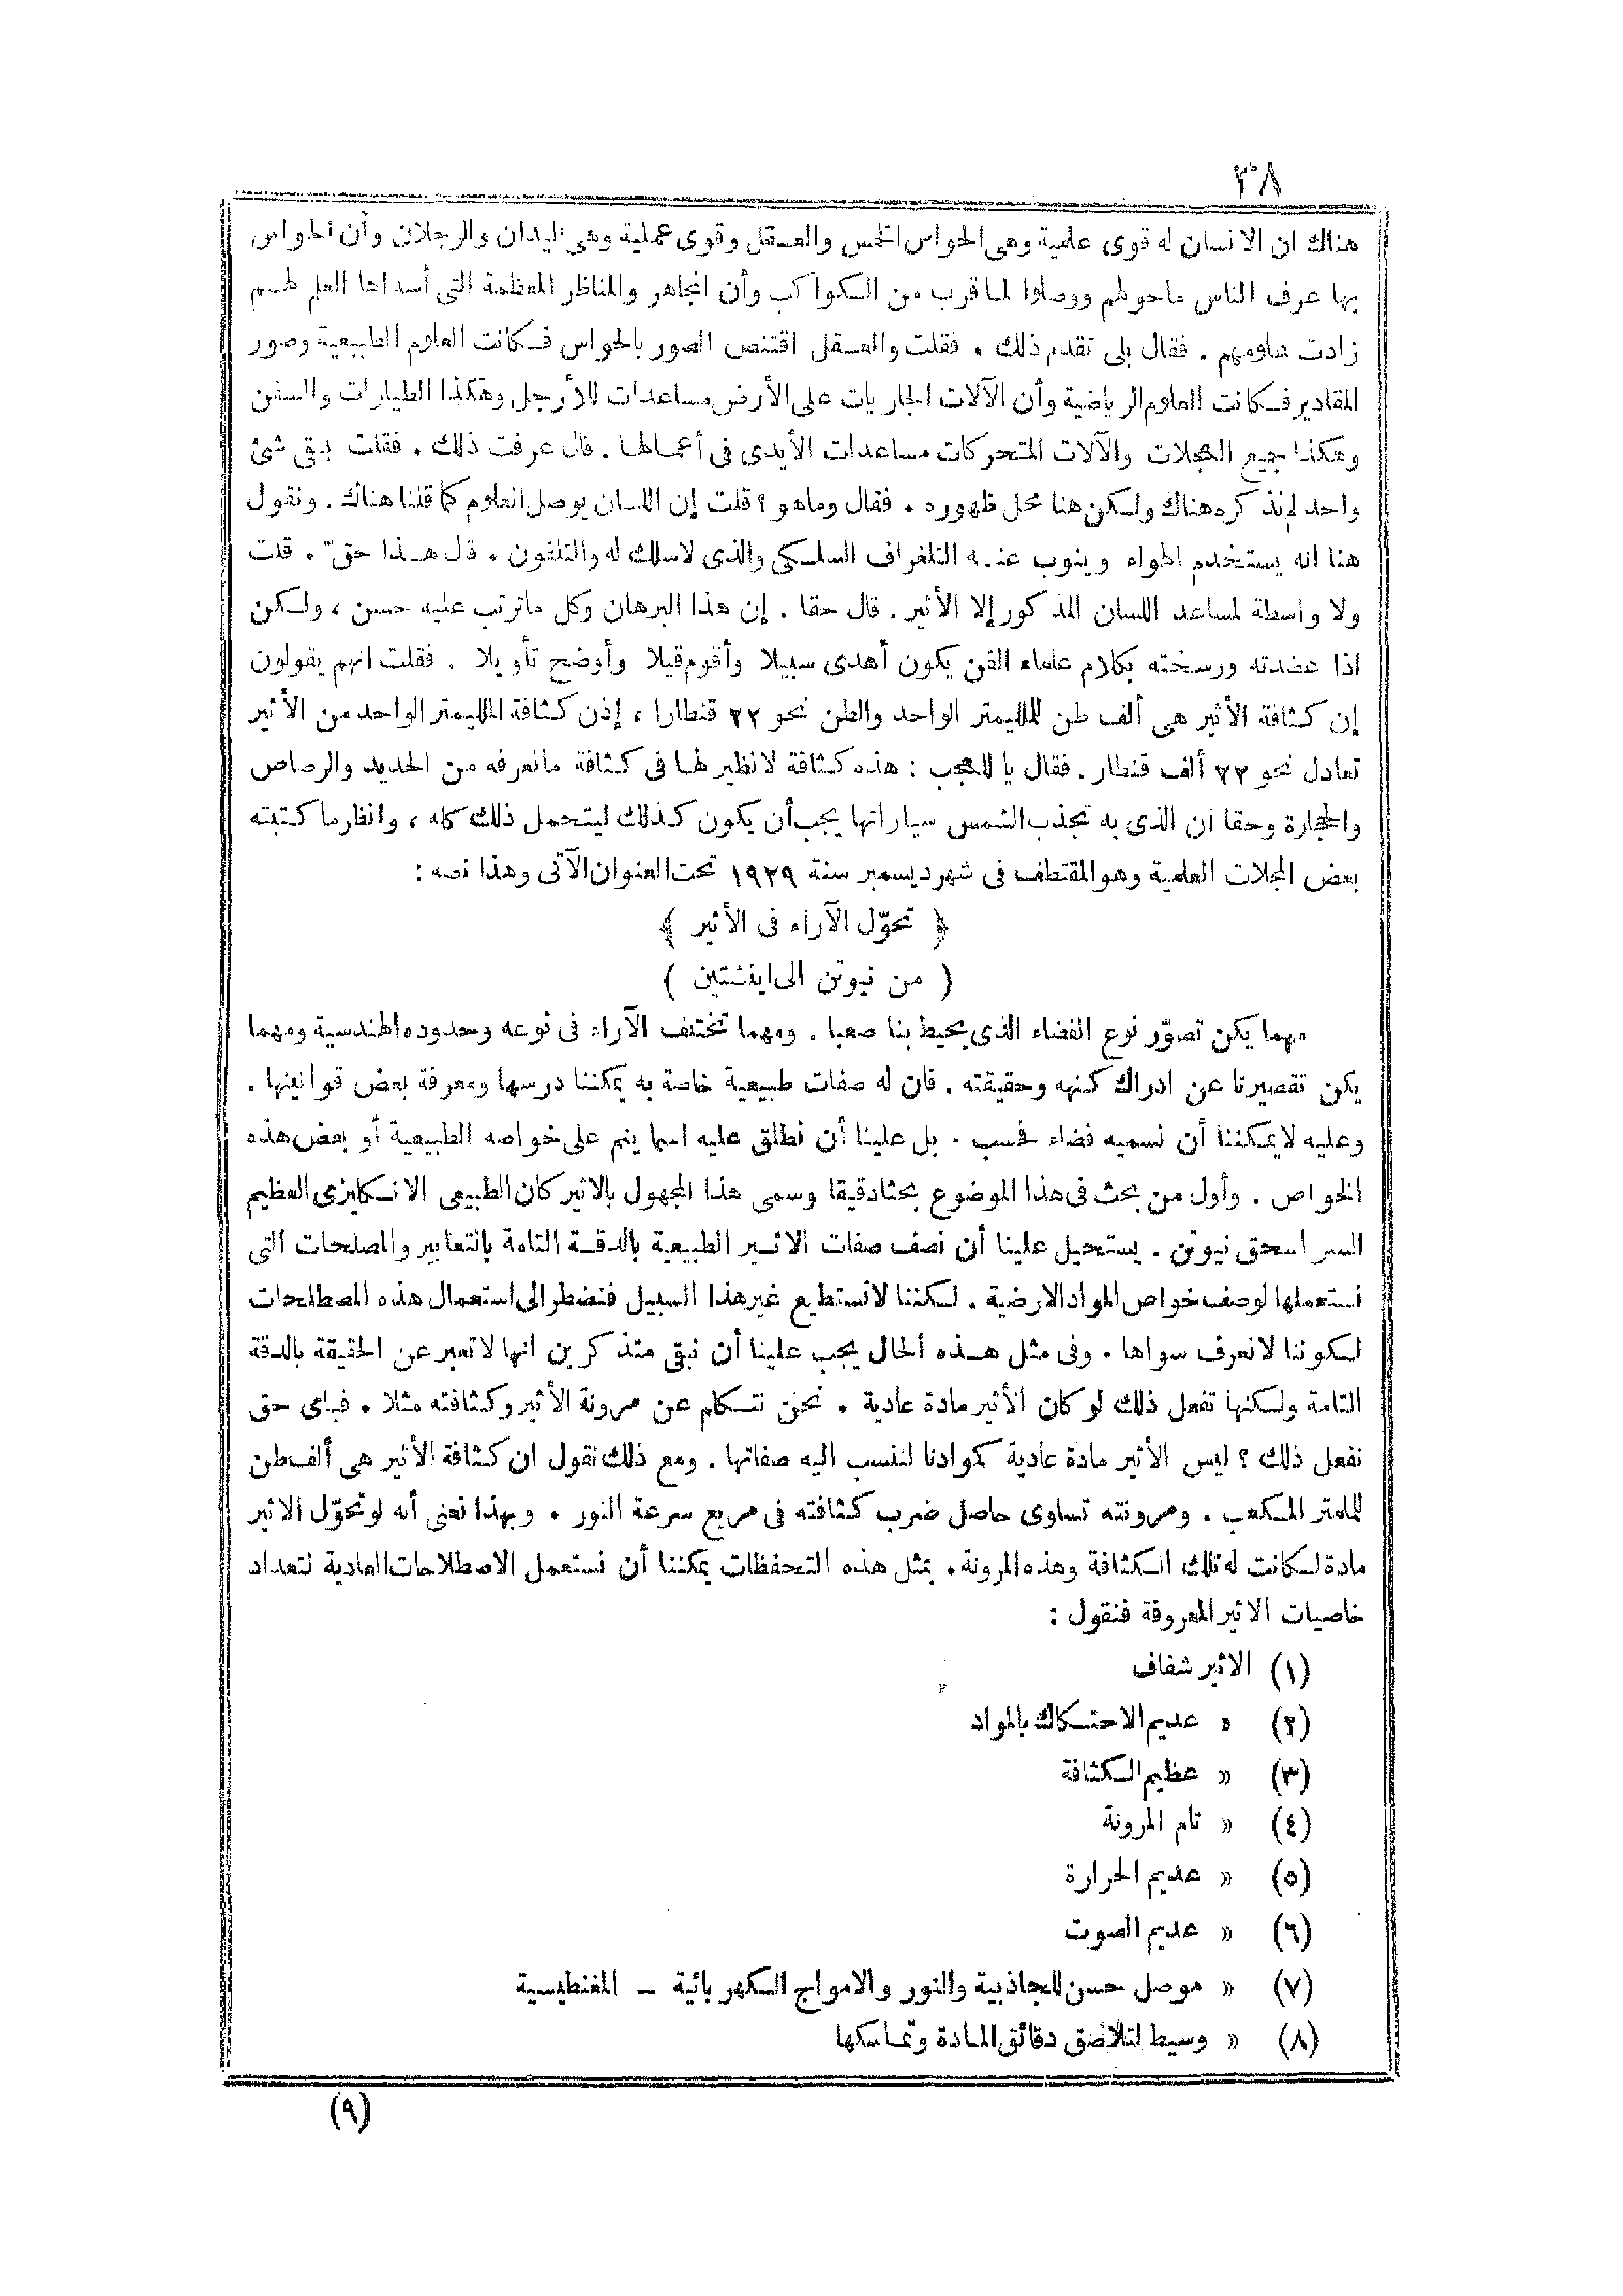 ٣٨
هناك ان الانسان له قوى علمية وهى الحواس الخمس والعقل وقوى عملية وهى اليدان والرجلان وأن الحواس
بها عرف الناس ماحولهم ووصلوا لما قرب من الكواكب وأن المجاهر والمناظر المعظمة التى أسداها العلم لهم
زادت علومهم . فقال بلى تقدم ذلك . فقلت والعقل اقتنص الصور بالحواس فكانت العلوم الطبيعية وصور
المقادير فكانت العلوم الرياضية وأن الآلات الجاريات على الأرض مساعدات للأرجل وهكذا الطيارات والسفن
وهكذا جميع العجلات والآلات المتحركات مساعدات الأيدى فى أعمالها . قال عرفت ذلك . فقلت بقى شئ
واحد لم نذكره هناك ولكن هنا محل ظهوره . فقال وماهو ؟ قلت إن اللسان يوصل العلوم كما قلنا هناك . ونقول
هنا انه يستخدم الهواء وينوب عنه التلغراف السلكى والذى لاسلك له والتلفون . قال هذا حقّ . قلت
ولا واسطة لمساعد اللسان المذكور إلا الأثير . قال حقا . إن هذا البرهان وكل ماترتب عليه حسن ، ولكن
اذا عضدته ورسخته بكلام علماء الفن يكون أهدى سبيلا وأقوم قيلا وأوضح تأويلا . فقلت انهم يقولون
إن كثافة الأثير هى ألف طن للمليمتر الواحد والطن نحو ٢٢ قنطارا ، إذن كثافة المليمتر الواحد من الأثير
تعادل نحو ٢٢ ألف قنطار . فقال يا للعجب : هذه كثافة لانظير لها فى كثافة مانعرفه من الحديد والرصاص
والحجارة وحقا ان الذى به تجذب الشمس سياراتها يجب أن يكون كذلك ليتحمل ذلك كله ، وانظر ما كتبته
بعض المجلات العلمية وهو المقتطف فى شهر ديسمبر سنة ١٩٢٩ تحت العنوان الآتى وهذا نصه :
﴿ تحوّل الآراء فى الأثير ﴾
( من نيوتن الى اينشتين )
مهما يكن تصوّر نوع الفضاء الذى يحيط بنا صعبا . ومهما تختلف الآراء فى نوعه وحدوده الهندسية ومهما
يكن تقصيرنا عن ادراك كنهه وحقيقته . فان له صفات طبيعية خاصة به يمكننا درسها ومعرفة بعض قوانينها .
وعليه لايمكننا أن نسميه فضاء فحسب . بل علينا أن نطلق عليه اسما ينم على خواصه الطبيعية أو بعض هذه
الخواص . وأول من بحث فى هذا الموضوع بحثا دقيقا وسمى هذا المجهول بالاثير كان الطبيعى الانكليزى العظيم
السر اسحق نيوتن . يستحيل علينا أن نصف صفات الاثير الطبيعية بالدقة التامة بالتعابير والمصلحات التى
نستعملها لوصف خواص المواد الارضية . لكننا لانستطيع غير هذا السبيل فنضطر الى استعمال هذه المصطلحات
لكوننا لانعرف سواها . وفى مثل هذه الحال يجب علينا أن نبقى متذكرين انها لاتعبر عن الحقيقة بالدقة
التامة ولكنها تفعل ذلك لو كان الأثير مادة عادية . نحن نتكلم عن مرونة الأثير وكثافته مثلا . فباى حق
نفعل ذلك ؟ ليس الأثير مادة عادية كموادنا لننسب اليه صفاتها . ومع ذلك نقول ان كثافة الأثير هى ألف طن
للمتر المكعب . ومرونته تساوى حاصل ضرب كثافته فى مربع سرعة النور . وبهذا نعنى أنه لو تحوّل الاثير
مادة لكانت له تلك الكثافة وهذه المرونة . بمثل هذه التحفظات يمكننا أن نستعمل الاصطلاحات العادية لتعداد
خاصيات الاثير المعروفة فنقول :
(١) الاثير شفاف
(٢) « عديم الاحتكاك بالمواد
(٣) « عظيم الكثافة
(٤) « تام المرونة
(٥) « عديم الحرارة
(٦) « عديم الصوت
(٧) « موصل حسن للجاذبية والنور والامواج الكهربائية – المغنطيسية
(٨) « وسيط لتلاصق دقائق المادة وتماسكها
(٩)